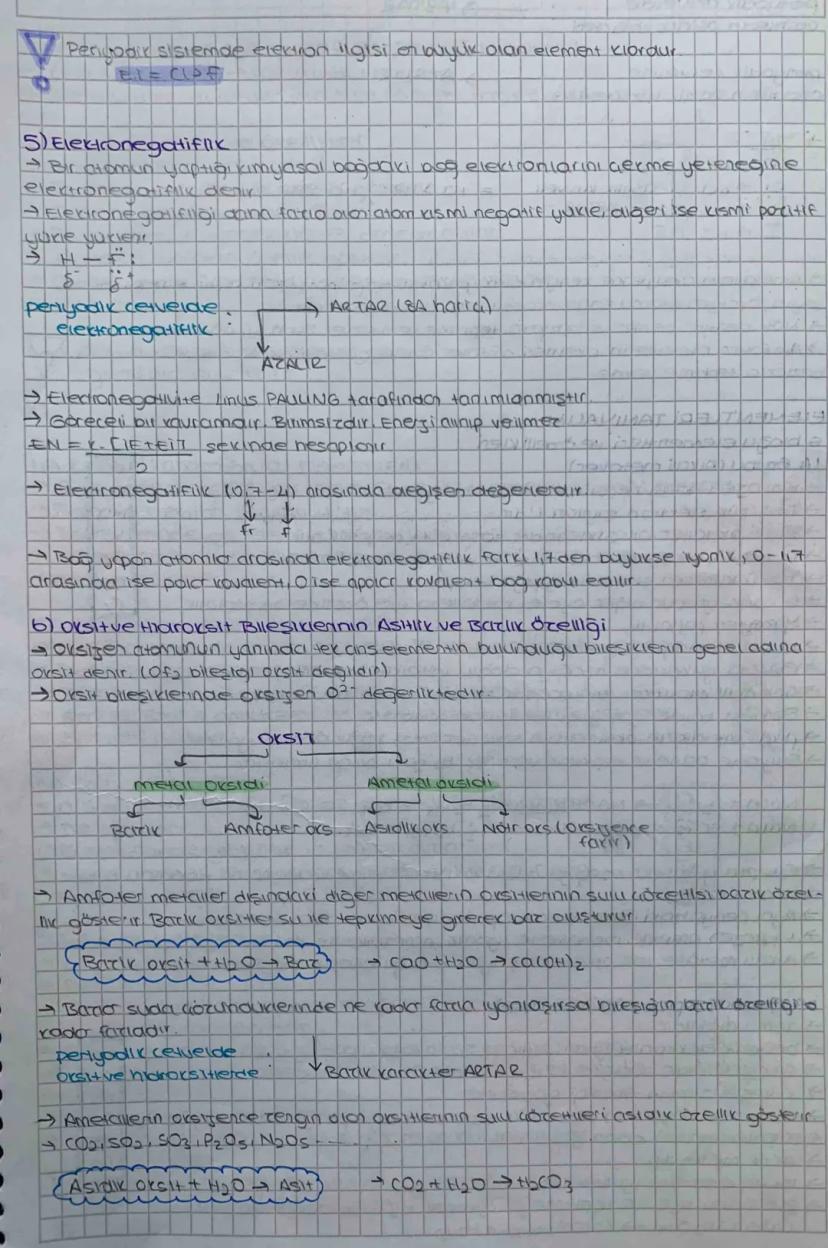 Periyodik sistemde elektron ilgisi en büyük olan element klordur.
EI = Cl > F
5) Elektronegatiflik
→ Bir atomun yaptığı kimyasal bağdaki bağ elektronlarını çekme yeteneğine
elektronegatiflik denir.
→ Elektronegatifliği daha fazla olan atom kısmi negatif yükle, diğeri ise kısmi pozitif
yükle yüklenir.
→ H – F:
δ⁻ δ⁺
periyodik cetvelde :
elektronegatiflik
→ ARTAR (8A harici)
AZALIR
→ Elektronegativite Linus PAULING tarafından tanımlanmıştır.
→ Göreceli bir kavramdır. Birimsizdir. Enerji alınıp verilmez
EN = k.[IE+EI] şeklinde hesaplanır
2
→ Elektronegatiflik (0,7-4) arasında değişen değerlerdir.
↓ ↓
fr f
→ Bağ yapan atomlar arasında elektronegatiflik farkı 1,7 den büyükse iyonik, 0-1,7
arasında ise polar kovalent, 0 ise apolar kovalent bağ kabul edilir.
6) Oksit ve Hidroksit Bileşiklerinin Asitlik ve Bazlık Özelliği
→ Oksijen atomunun yanında tek cins elementin bulunduğu bileşiklerin genel adına
oksit denir. (OF₂ bileşiği oksit değildir)
→ Oksit bileşiklerinde oksijen O²⁻ değerliktedir.
OKSİT
metal oksidi Ametal oksidi
Bazik Amfoter oks Asidik oks Nötr oks (oksijence
fakir)
→ Amfoter metaller dışındaki diğer metallerin oksitlerinin sulu çözeltisi bazik özel-
lik gösterir. Bazik oksitler su ile tepkimeye girerek baz oluşturur.
Bazik oksit + H₂O → Baz → CaO + H₂O → Ca(OH)₂
→ Bazlar suda çözündüklerinde ne kadar fazla iyonlaşırsa bileşiğin bazik özelliği o
kadar fazladır.
periyodik cetvelde :
oksit ve hidroksitlerde
↓ Bazik karakter ARTAR
→ Ametallerin oksijence zengin olan oksitlerinin sulu çözeltileri asidik özellik gösterir
→ CO₂, SO₂, SO₃, P₂O₅, N₂O₅ ......
Asidik oksit + H₂O → Asit → CO₂ + H₂O → H₂CO₃